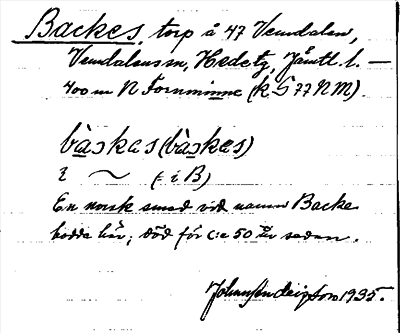 Backes, torp å 47 Vemdalen,
Vemdalens sn, Hede tg, Jämtl. l. —
400 m N Fornminne (k. S 77 N M).
bàskas (bàskes)
i ~ (t i B)
En norsk smed vid namn Backe
bodde här, död för c:a 50 år sedan.
1935.